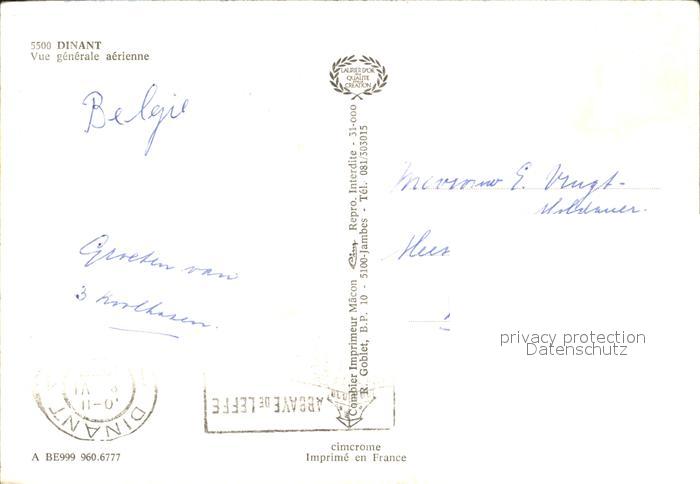 5500 DINANT
Vue générale aérienne
LAURIER D'OR
QUALITÉ
CREATION
België
Groeten van
3
Mevrouw E. Vrugt-
Combier Imprimeur Mâcon Cim Repro. Interdite - 31-000
R. Goblet, B.P. 10 - 5100-Jambes - Tél. 081/303015
privacy protection
Datenschutz
DINANT
ABBAYE DE LEFFE
cimcrome
Imprimé en France
A BE999 960.6777